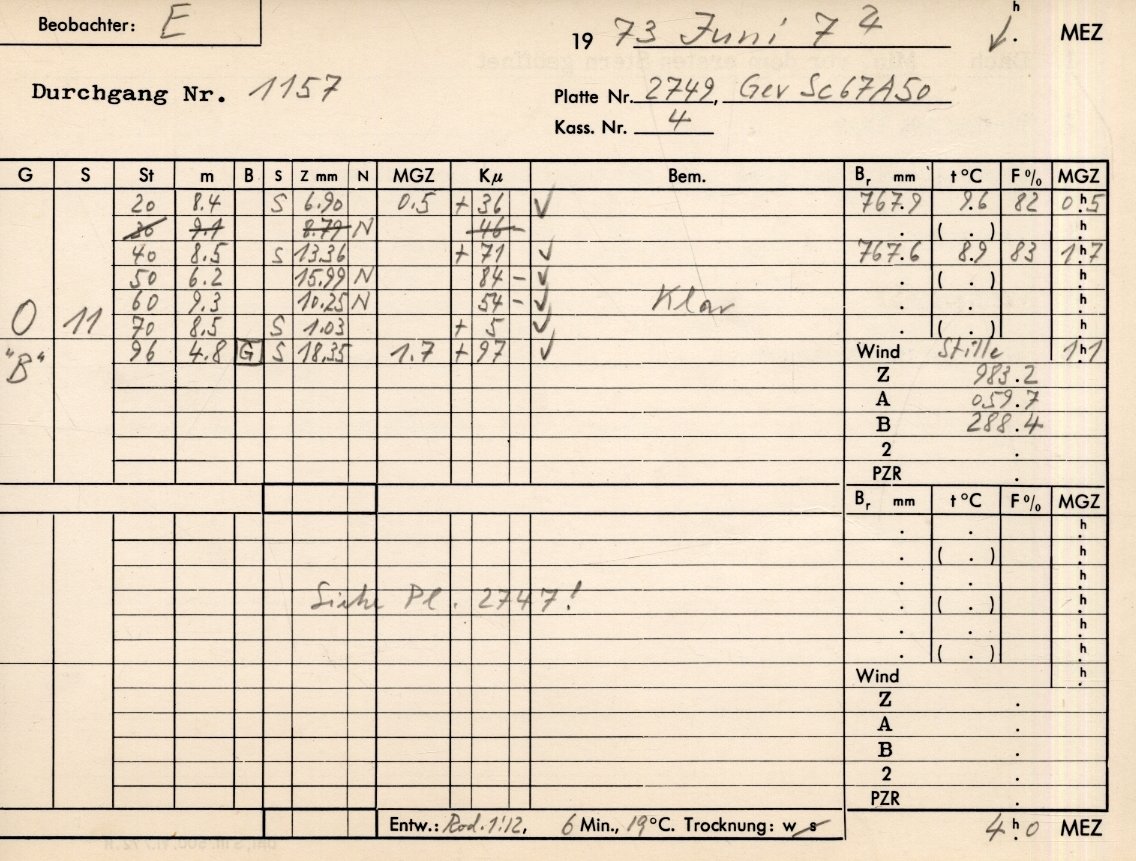 Beobachter: E
19 73 Juni 7 h. MEZ
Durchgang Nr. 1157
Platte Nr. 2749, Gev Sc67A50
Kass. Nr. 4
G S St m B S Z mm N MGZ Kμ Bem. Br mm t °C F % MGZ
20 8.4 S 6.90 0.5 + 36 ✓ 767.9 9.6 82 0h.5
30 9.1 8.79 N 46 - . ( . ) h.
40 8.5 S 13.36 + 71 ✓ 767.6 8.9 83 1h.7
50 6.2 15.99 N 84 - ✓ . ( . ) h.
60 9.3 10.25 N 54 - ✓ Klar . . h.
0 11 70 8.5 S 1.03 + 5 ✓ . ( . ) h.
"B" 96 4.8 G S 18.35 1.7 + 97 ✓ Wind Stille 1h.1
Z 983.2
A 059.7
B 288.4
2 .
PZR .
Br mm t °C F % MGZ
. . h.
. ( . ) h.
. . h.
Siehe Pl. 2747! . ( . ) h.
. . h.
. ( . ) h.
Wind h.
Z .
A .
B .
2 .
PZR .
Entw.: Rod. 1:12, 6 Min., 19°C. Trocknung: w s 4h.0 MEZ